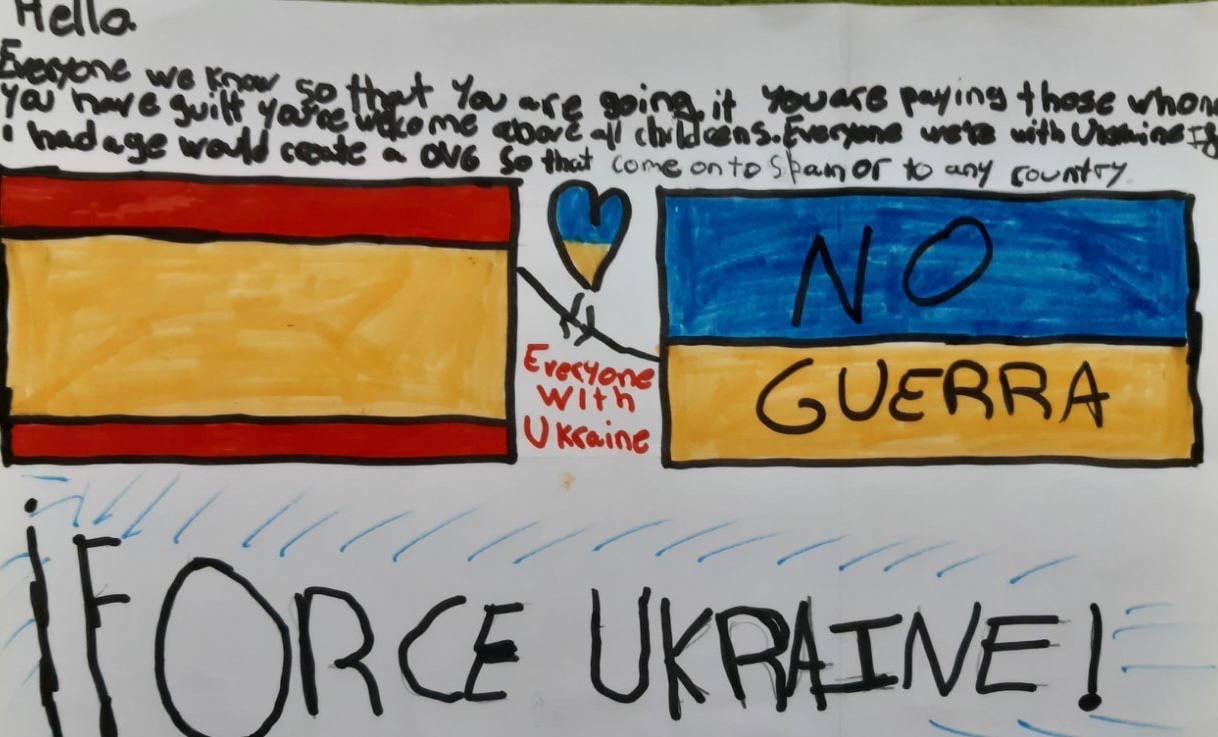 Hello
Everyone we know so that You are going it You are paying those whom
you have guilt you're welcome above all childrens. Everyone we're with Ukraine If
i had age would create a OVG so that come on to Spain or to any country.
NO
GUERRA
Everyone
With
Ukraine
¡FORCE UKRAINE!